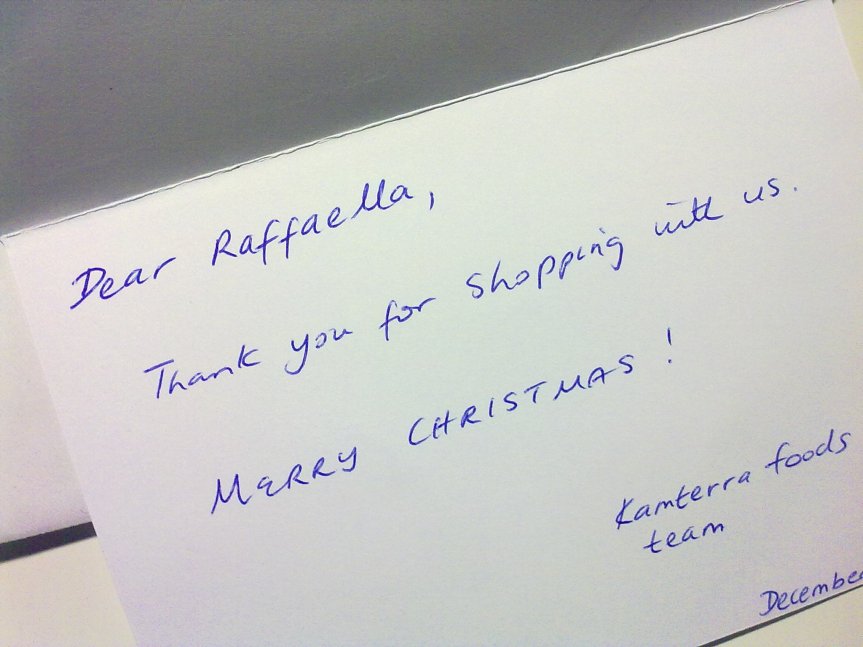 Dear Raffaella,
Thank you for shopping with us.
MERRY CHRISTMAS!
Kamterra foods
team
December